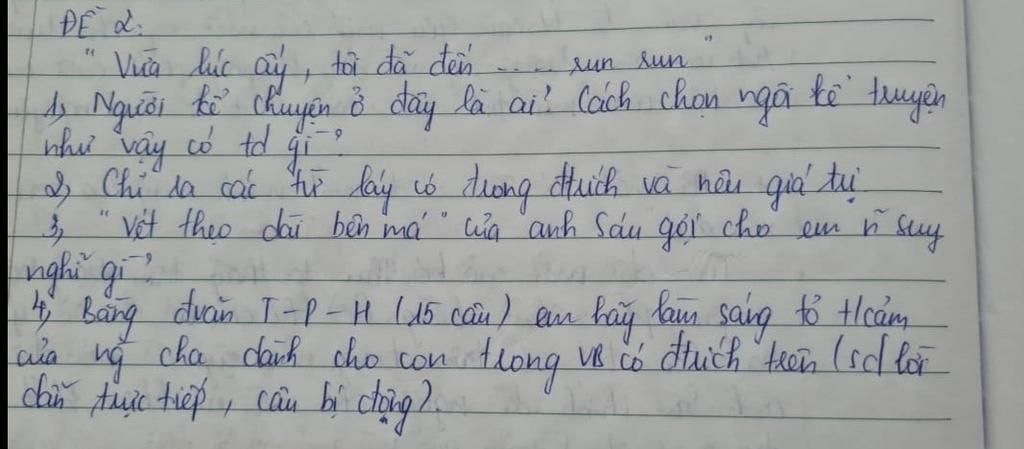 ĐỀ 2:
"Vừa lúc ấy, tôi đã đến ..... run run"
1, Người kể chuyện ở đây là ai? Cách chọn ngôi kể truyện
như vậy có td gì?
2, Chỉ ra các từ láy có trong đtrích và nêu giá trị.
3, "Vết thẹo dài bên má" của anh Sáu gợi cho em n~ suy
nghĩ gì?
4, Bằng đvăn T-P-H (15 câu) em hãy làm sáng tỏ t/cảm
của ng cha dành cho con trong VB có đtrích trên (sd lời
dẫn trực tiếp, câu bị động).